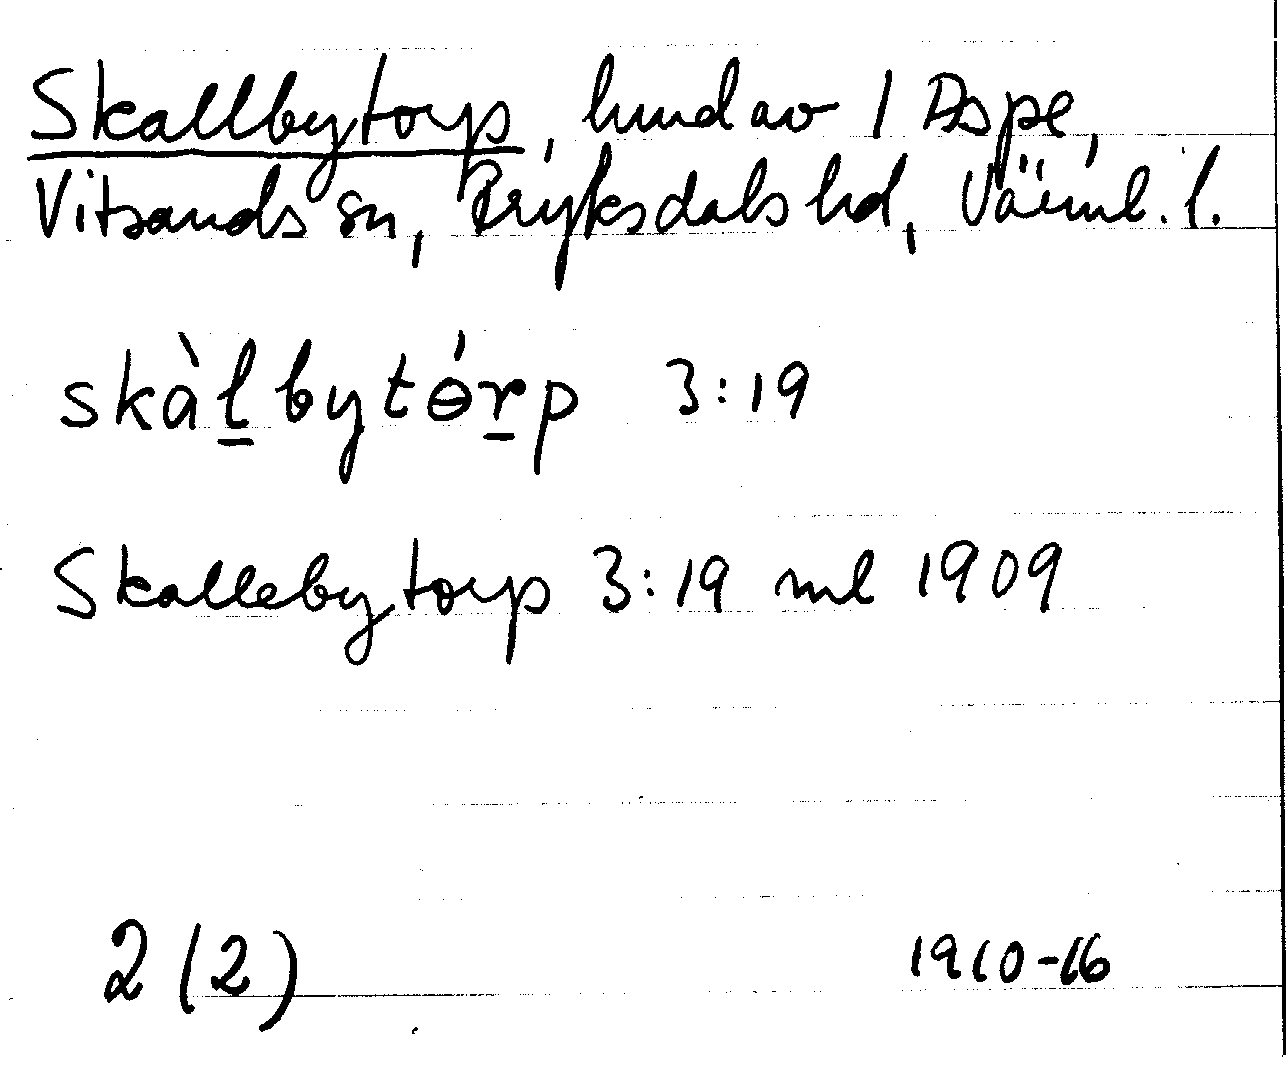 Skallbytorp, hmd av 1 Aspe,
Vitsands sn, Fryksdals hd, Värml. l.
skàł̲bytɵ́r̲p 3:19
Skallebytorp 3:19 ml 1909
2 (2) 1910-16